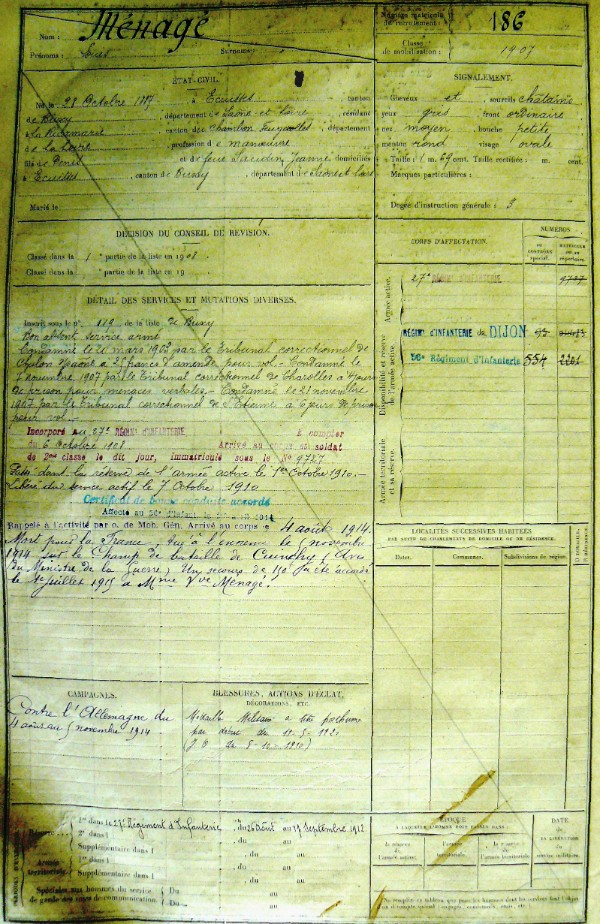 Nom : Ménagé
Prénoms : Louis Surnoms :
Numéro matricule du recrutement : 186
Classe de mobilisation : 1907
ÉTAT CIVIL.
Né le 28 Octobre à Ecuisses canton
de Buxy, département de Saône et Loire, résidant
à La Ricamarie canton de Chambon Feugerolles, département
de la Loire profession de manœuvre
fils de Denis et de feue Jeanne domiciliés
à Ecuisses, canton de Buxy, département de Saône et Loire
Marié le
SIGNALEMENT.
Cheveux et sourcils châtains
yeux gris front ordinaire
nez moyen bouche petite
menton rond visage ovale
Taille : 1 m. 69 cent. Taille rectifiée : m. cent.
Marques particulières :
Degré d'instruction générale : 3
DÉCISION DU CONSEIL DE RÉVISION.
Classé dans la 1 partie de la liste en 1908
Classé dans la partie de la liste en 19
DÉTAIL DES SERVICES ET MUTATIONS DIVERSES.
Inscrit sous le n° 119 de la liste de Buxy
Bon absent service armé
Condamné le mars par le Tribunal correctionnel de
Chalon à 25 francs d'amende pour vol - Condamné le
7 décembre 1907 par le Tribunal correctionnel de Charolles à jours
de prison pour menaces verbales - Condamné le novembre
1907 par le Tribunal correctionnel de St Etienne à 6 jours de prison
pour vol
Incorporé au 27e RÉGIMENT D'INFANTERIE à compter
du 6 Octobre 1908 Arrivé au corps et soldat
de 2me classe le dit jour, immatriculé sous le No 9787
Passé dans la réserve de l'armée active le 1er Octobre 1910.
Libéré du service actif le 7 Octobre 1910
Certificat de bonne conduite accordé
Affecté au 56e d'Infant.
Rappelé à l'activité par o. de Mob. Gén. Arrivé au corps le 4 août 1914.
Mort pour la France, tué à l'ennemi le novembre
1914 sur le Champ de bataille de Cuinchy (Avis
du Ministre de la Guerre) Un secours de 150 f a été accordé
le juillet 1915 à Mme Vve Ménagé.
CORPS D'AFFECTATION.
NUMÉROS
au contrôle spécial.
matricule ou au répertoire.
Armée active.
27e RÉGIMENT D'INFANTERIE 9787
Disponibilité et réserve de l'armée active.
RÉGIMt D'INFANTERIE de DIJON
56e Régiment d'Infanterie 554
Armée territoriale et sa réserve.
LOCALITÉS SUCCESSIVES HABITÉES
PAR SUITE DE CHANGEMENTS DE DOMICILE OU DE RÉSIDENCE.
Dates. Communes. Subdivisions de région.
CAMPAGNES.
Contre l'Allemagne du
4 août au 5 novembre 1914
BLESSURES, ACTIONS D'ÉCLAT,
DÉCORATIONS, ETC.
Médaille Militaire à titre posthume
par décret du
1er dans le 27e Régiment d'Infanterie, du 26 Août au 19 Septembre 1912
2e dans l , du au
Supplémentaire dans l , du au
Armée territoriale
1er dans l , du au
Supplémentaire dans l , du au
Spéciales aux hommes du service de garde des voies de communication. Du au
Du au
ÉPOQUE
À LAQUELLE L'HOMME DOIT PASSER DANS :
la réserve de l'armée active.
l'armée territoriale.
la réserve de l'armée territoriale.
DATE
DE LA LIBÉRATION
du service militaire.